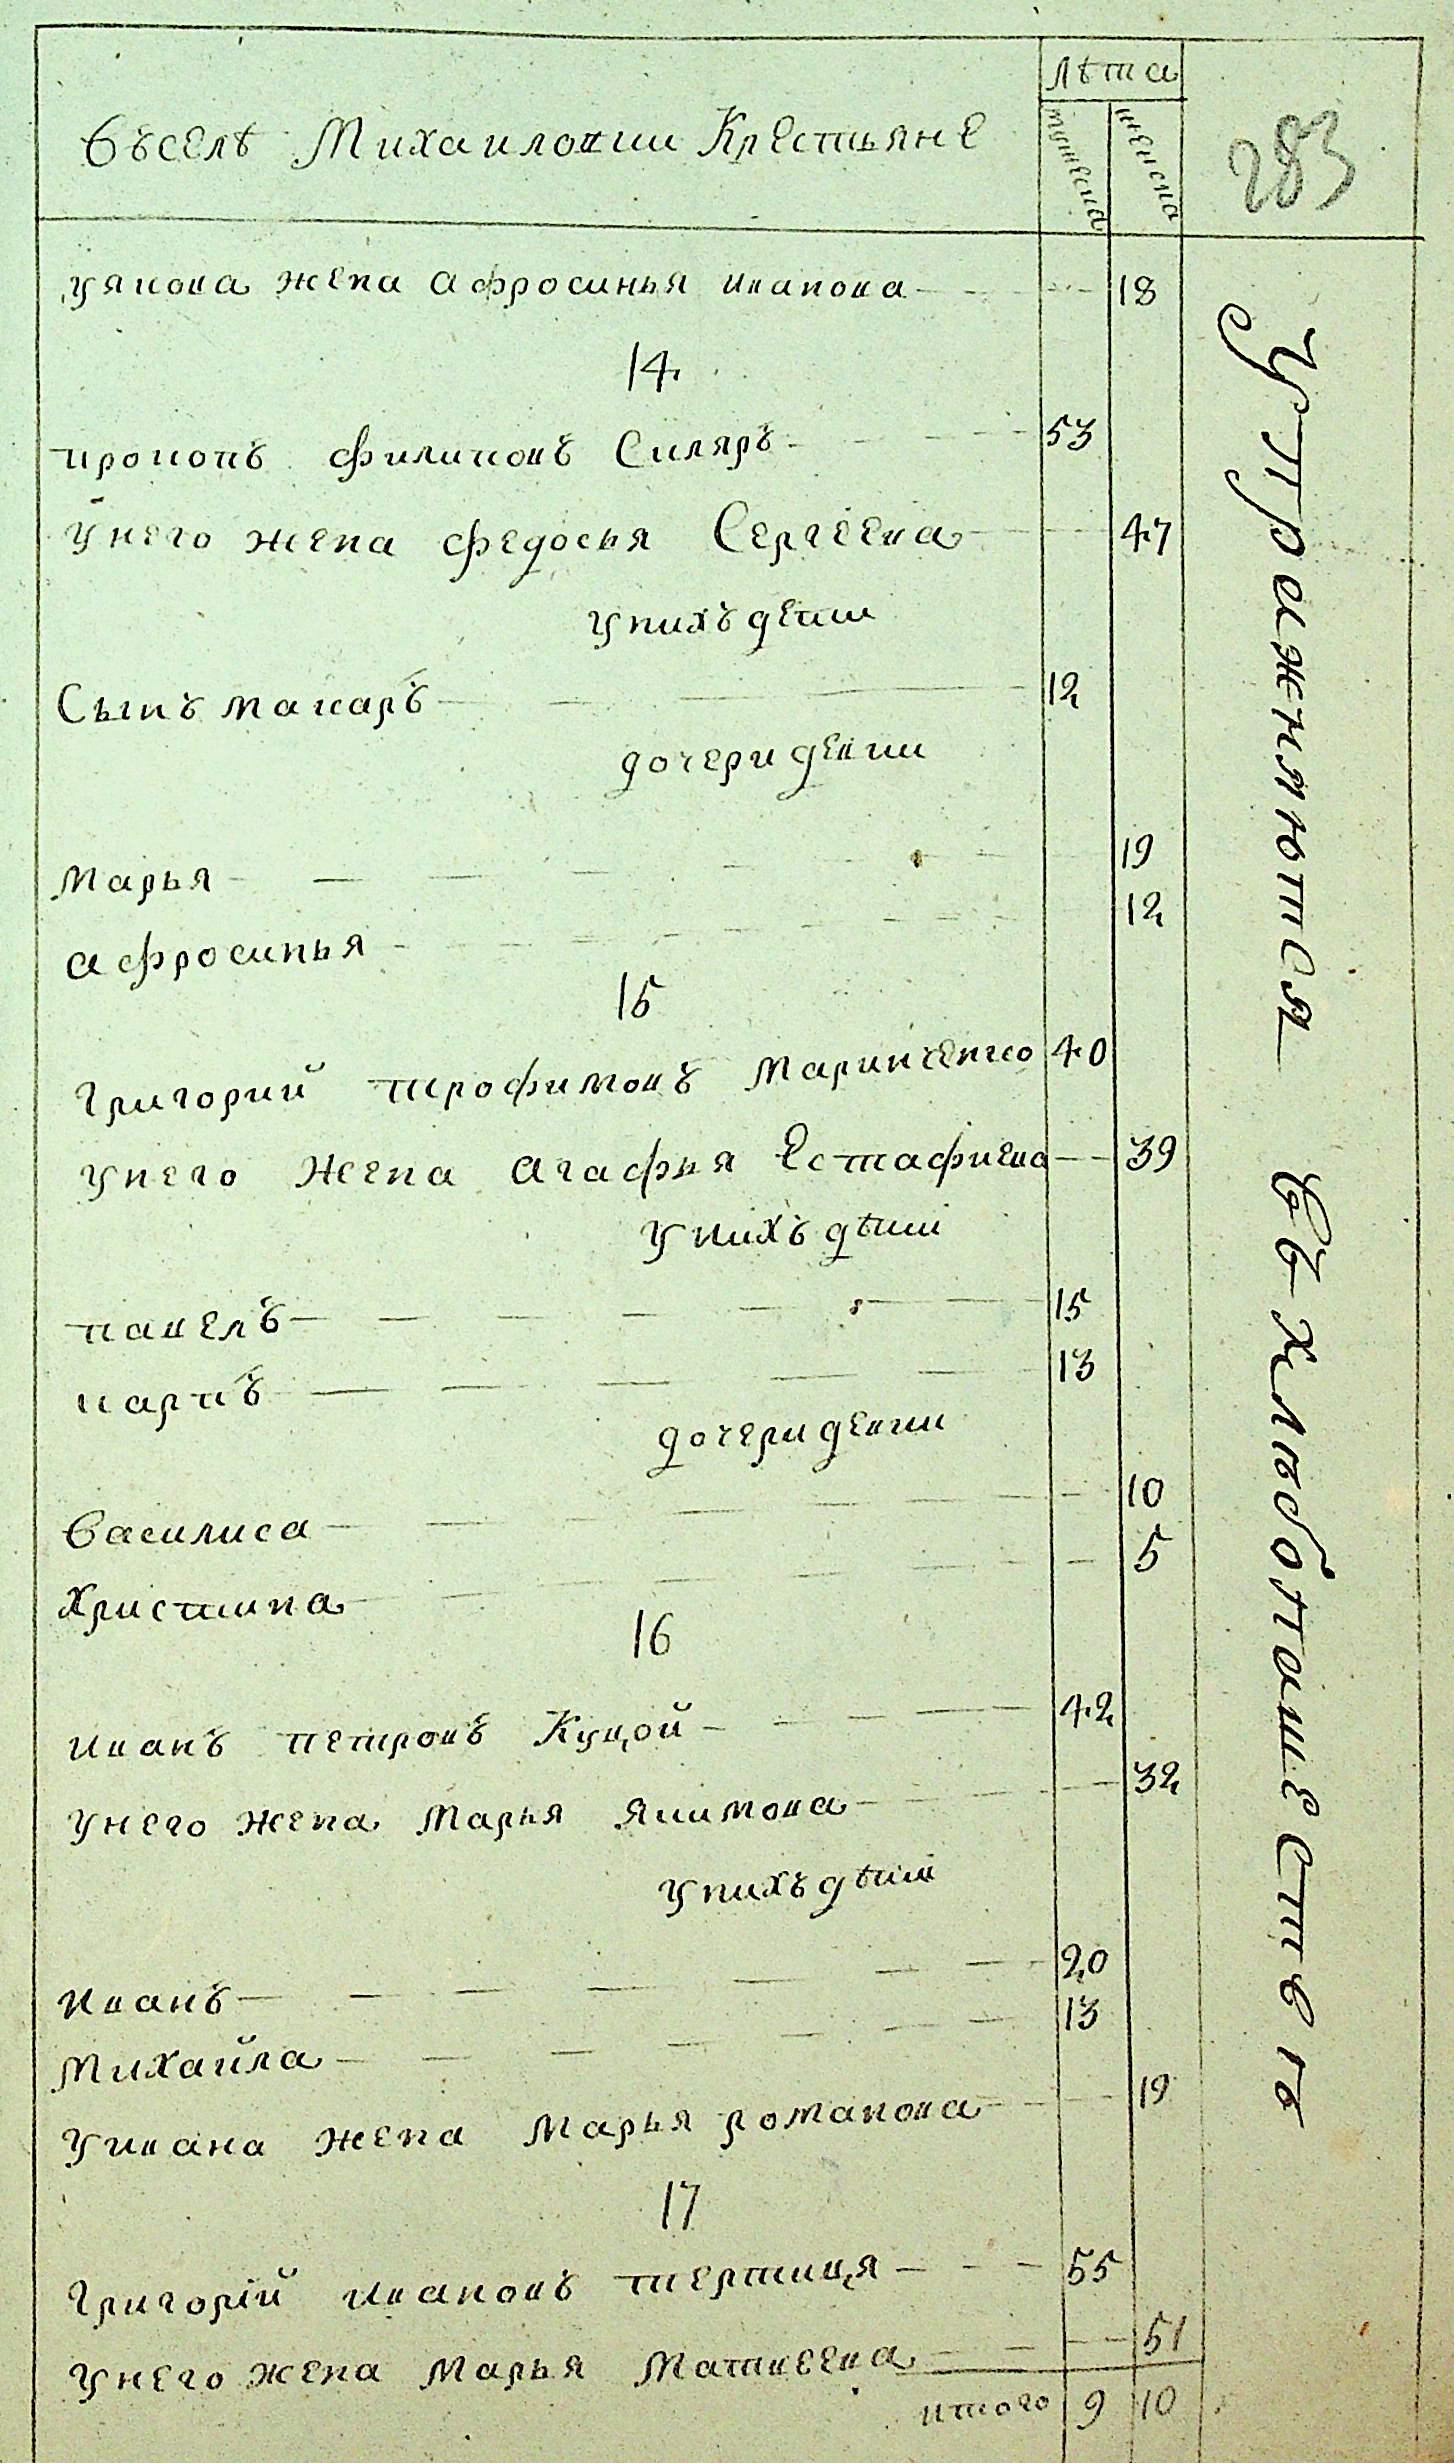 Въселѣ Михаиловки Крестьяне
лѣта
мужеска
женска
283
уякова жена афросинья иванова 18
14
прокопъ филиповъ Скляръ 53
унего жена федосья Сергеевна 47
унихъ дети
Сынъ макаръ 12
дочери девки
марья 19
афросинья 12
15
григорий трофимовъ маринченко 40
унего жена агафья Естафиева 39
унихъ дѣти
павелъ 15
карпъ 13
дочери девки
василиса 10
христина 5
16
иванъ петровъ Куцой 42
унего жена марья якимова 32
унихъ дѣти
иванъ 20
михайла 13
уивана жена марья романова 19
17
григорій ивановъ тертица 55
унего жена марья матвеева 51
итого 9 10
упражняются въ хлѣбопашествѣ